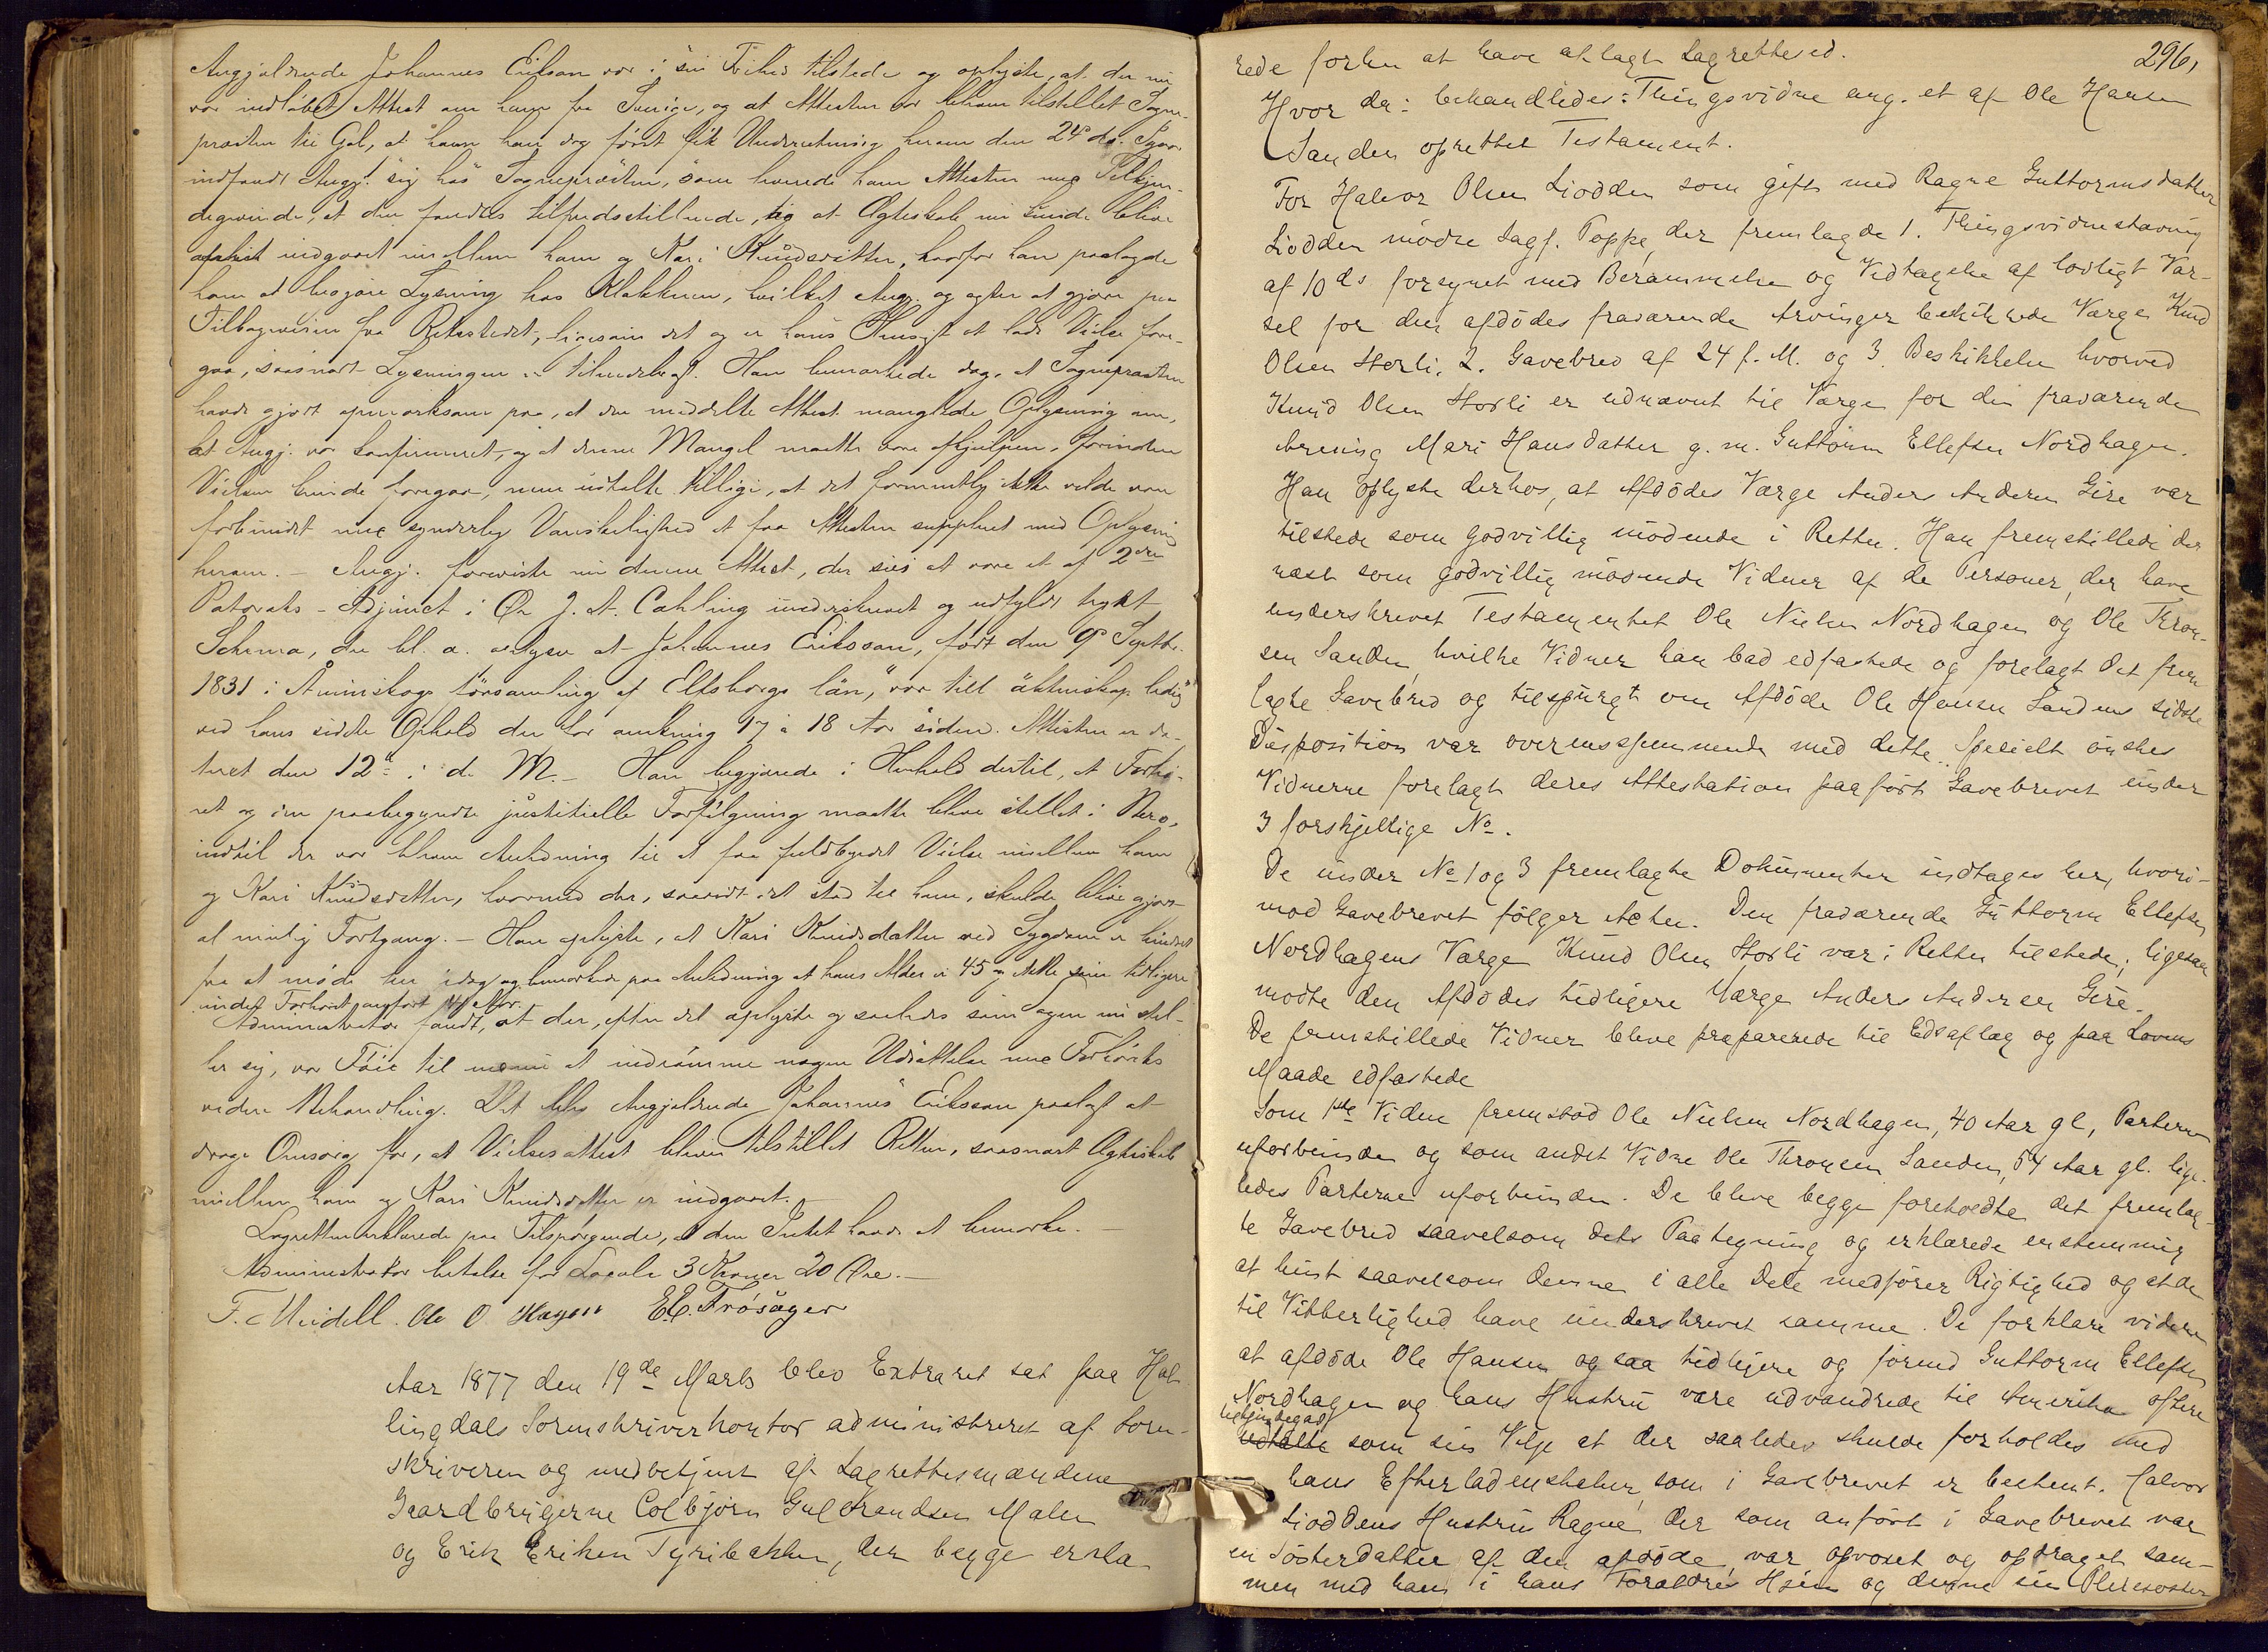 Angjældende Johannes Erikson var i sin Frihed tilstede og oplyste, at der nu
var indløbet Attest om ham fra Sverige, og at Attesten var bleven tilstillet Sogne-
præsten til Gol, at han dog først fik Underretning herom den 24de ds. Igaar
indfandt Angj. sig hos Sognepræsten, som leverede ham Attesten med Tilkjen-
degivende, at den fandtes tilfredsstillende, og at Ægteskab nu kunde blive
indgaaet mellem ham og Kari Knudsdatter, hvorfor han paalagde
ham at besørge Lysning hos Klokkeren, hvilket Angj. og agter at gjøre paa
Tilbageveien fra Retsstedet, ligesom det og er hans Hensigt at lade Vielse fore-
gaa, saasnart Lysningen er tilendebragt. Han bemærkede dog, at Sognepræsten
havde gjort opmærksom paa, at den meddelte Attest manglede Oplysning om,
at Angj. var konfirmeret, og at denne Mangel maatte være afhjulpen, forinden
Vielsen kunde foregaa, men udtalte tillige, at det formentlig ikke vilde være
forbundet med synderlig Vanskelighed at faa Attesten suppleret med Oplysning
herom. – Angj. foreviste nu denne Attest, der sees at være et af 2den
Pastorats-Adjunct i Ør J. A. Cahling underskrevet og udfyldt trykt
Schema, der bl. a. oplyser at Johannes Eriksson, født den 9de Septbr.
1831 i Åminskogs församling af Elfsborgs län, "var till äktenskap ledig"
ved hans sidste Ophold der for omkring 17 à 18 Aar siden. Attesten er da-
teret den 12te i d. M. – Han begjærede i Henhold dertil, at Forhø-
ret og den paabegyndte justitielle Forfølgning maatte blive stillet i Bero,
indtil der var bleven Anledning til at faa fuldbyrdet Vielse mellem ham
og Kari Knudsdatter, hvormed der, saavidt det stod til ham, skulde blive gjort
al mulig Fortgang. – Han oplyste, at Kari Knudsdatter ved Sygdom er hindret
fra at møde her idag og bemærker paa Anledning at hans Alder er 45 og ikke som tidligere
under Forhøret anført 47 Aar.
Administrator fandt, at der, efter det oplyste og saaledes som Sagen nu stil-
ler sig, var Føie til at indrømme nogen Udsættelse med Forhørets
videre Behandling. Det blev Angjældende Johannes Eriksson paalagt at
drage Omsorg for, at Vielsesattest bliver tilstillet Retten, saasnart Ægteskab
mellem ham og Kari Knudsdatter er indgaaet. –
Lagretten erklærede paa Tilspørgende, at den Intet havde at bemærke. –
Administrator betalte for Locale 3 Kroner 20 Øre. –
F. Meidell. Ole O Hagen E. E. Trøsåger
Aar 1877 den 19de Marts blev Extraret sat paa Hal-
lingdals Sorenskriverkontor administreret af Soren-
skriveren og medbetjent af Lagrettesmændene
Gaardbrugerne Colbjørn Gulbrandsen Malen
og Erik Eriksen Tyribakken, der begge erklæ-
296,
rede forhen at have aflagt Lagretteed.
Hvor da: behandledes: Thingsvidne ang. et af Ole Hansen
Sanden oprettet Testament.
For Halvor Olsen Liodden som gift med Ragne Guttormsdatter
Liodden mødte Sagf. Poppe, der fremlagde 1. Thingsvidnestævning
af 10 ds forsynet med Berammelse og Vedtagelse af lovligt Var-
sel for den afdødes fraværende Arvinger beskikkede Værge Knud
Olsen Storli, 2. Gavebrev af 24 f. M. og 3. Beskikkelse hvorved
Knud Olsen Storli er udnævnt til Værge for den fraværende
Arving Mari Hansdatter g. m. Guttorm Ellefsen Nordhagen.
Han oplyste derhos, at Afdødes Værge Anders Andersen Gire var
tilstede som godvillig mødende i Retten. Han fremstillede der
næst som godvillig mødende Vidner af de Personer, der have
underskrevet Testamentet Ole Nielsen Nordhagen og Ole Thron-
sen Sanden, hvilke Vidner han bad edfæstede og forelagt det frem
lagte Gavebrev og tilspurgt om Afdøde Ole Hansen Sandens sidste
Disposition var overensstemmende med dette. Specielt ønskes
Vidnerne forelagt deres Attestation paaført Gavebrevet under
3 forskjellige No.
De under No 1 og 3 fremlagte Dokumenter indtages her, hvori-
mod Gavebrevet følger Acten. Den fraværende Guttorm Ellefsen
Nordhagens Værge Knud Olsen Storli var i Retten tilstede; ligesaa
mødte den Afdødes tidligere Værge Anders Andersen Gire.
De fremstillede Vidner bleve præparerede til Edsaflæg og paa Lovens
Maade edfæstede
Som 1ste Vidne fremstod Ole Nielsen Nordhagen, 40 Aar gl, Parterne
uforbunden og som andet Vidne Ole Thronsen Sanden, 54 Aar gl. lige-
ledes Parterne uforbunden. De bleve begge foreholdte det fremlag-
te Gavebrev saavelsom dets Paategning og erklærede enstemmig
at hint saavelsom denne i alle Dele medfører Rigtighed og at de
til Vitterlighed have underskrevet samme. De forklare videre
at afdøde Ole Hansen ogsaa tidligere og førend Guttorm Ellefsen
Nordhagen og hans Hustru vare udvandrede til Amerika oftere
tilkjendegaf
udtalte som sin Vilje at der saaledes skulde forholdes med
hans Efterladenskaber, som i Gavebrevet er bestemt. Halvor
Lioddens Hustru Ragne, der som anført i Gavebrevet var
en Søsterdatter af den afdøde, var opvoxet og opdraget sam-
men med ham i hans Forældres Huus og denne sin Pleiesøster